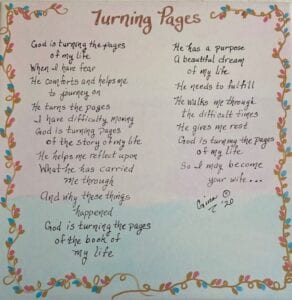 Turning Pages
God is turning the pages
of my life
When I have fear
He comforts and helps me
to journey on
He turns the pages
I have difficulty moving
God is turning pages
of the story of my life
He helps me reflect upon
What he has carried
me through
And why these things
happened
God is turning the pages
of the book of
my life
He has a purpose
A beautiful dream
of my life
He needs to fulfill
He walks me through
the difficult times
He gives me rest
God is turning the pages
of my life
So I may become
your wife...
©
'20